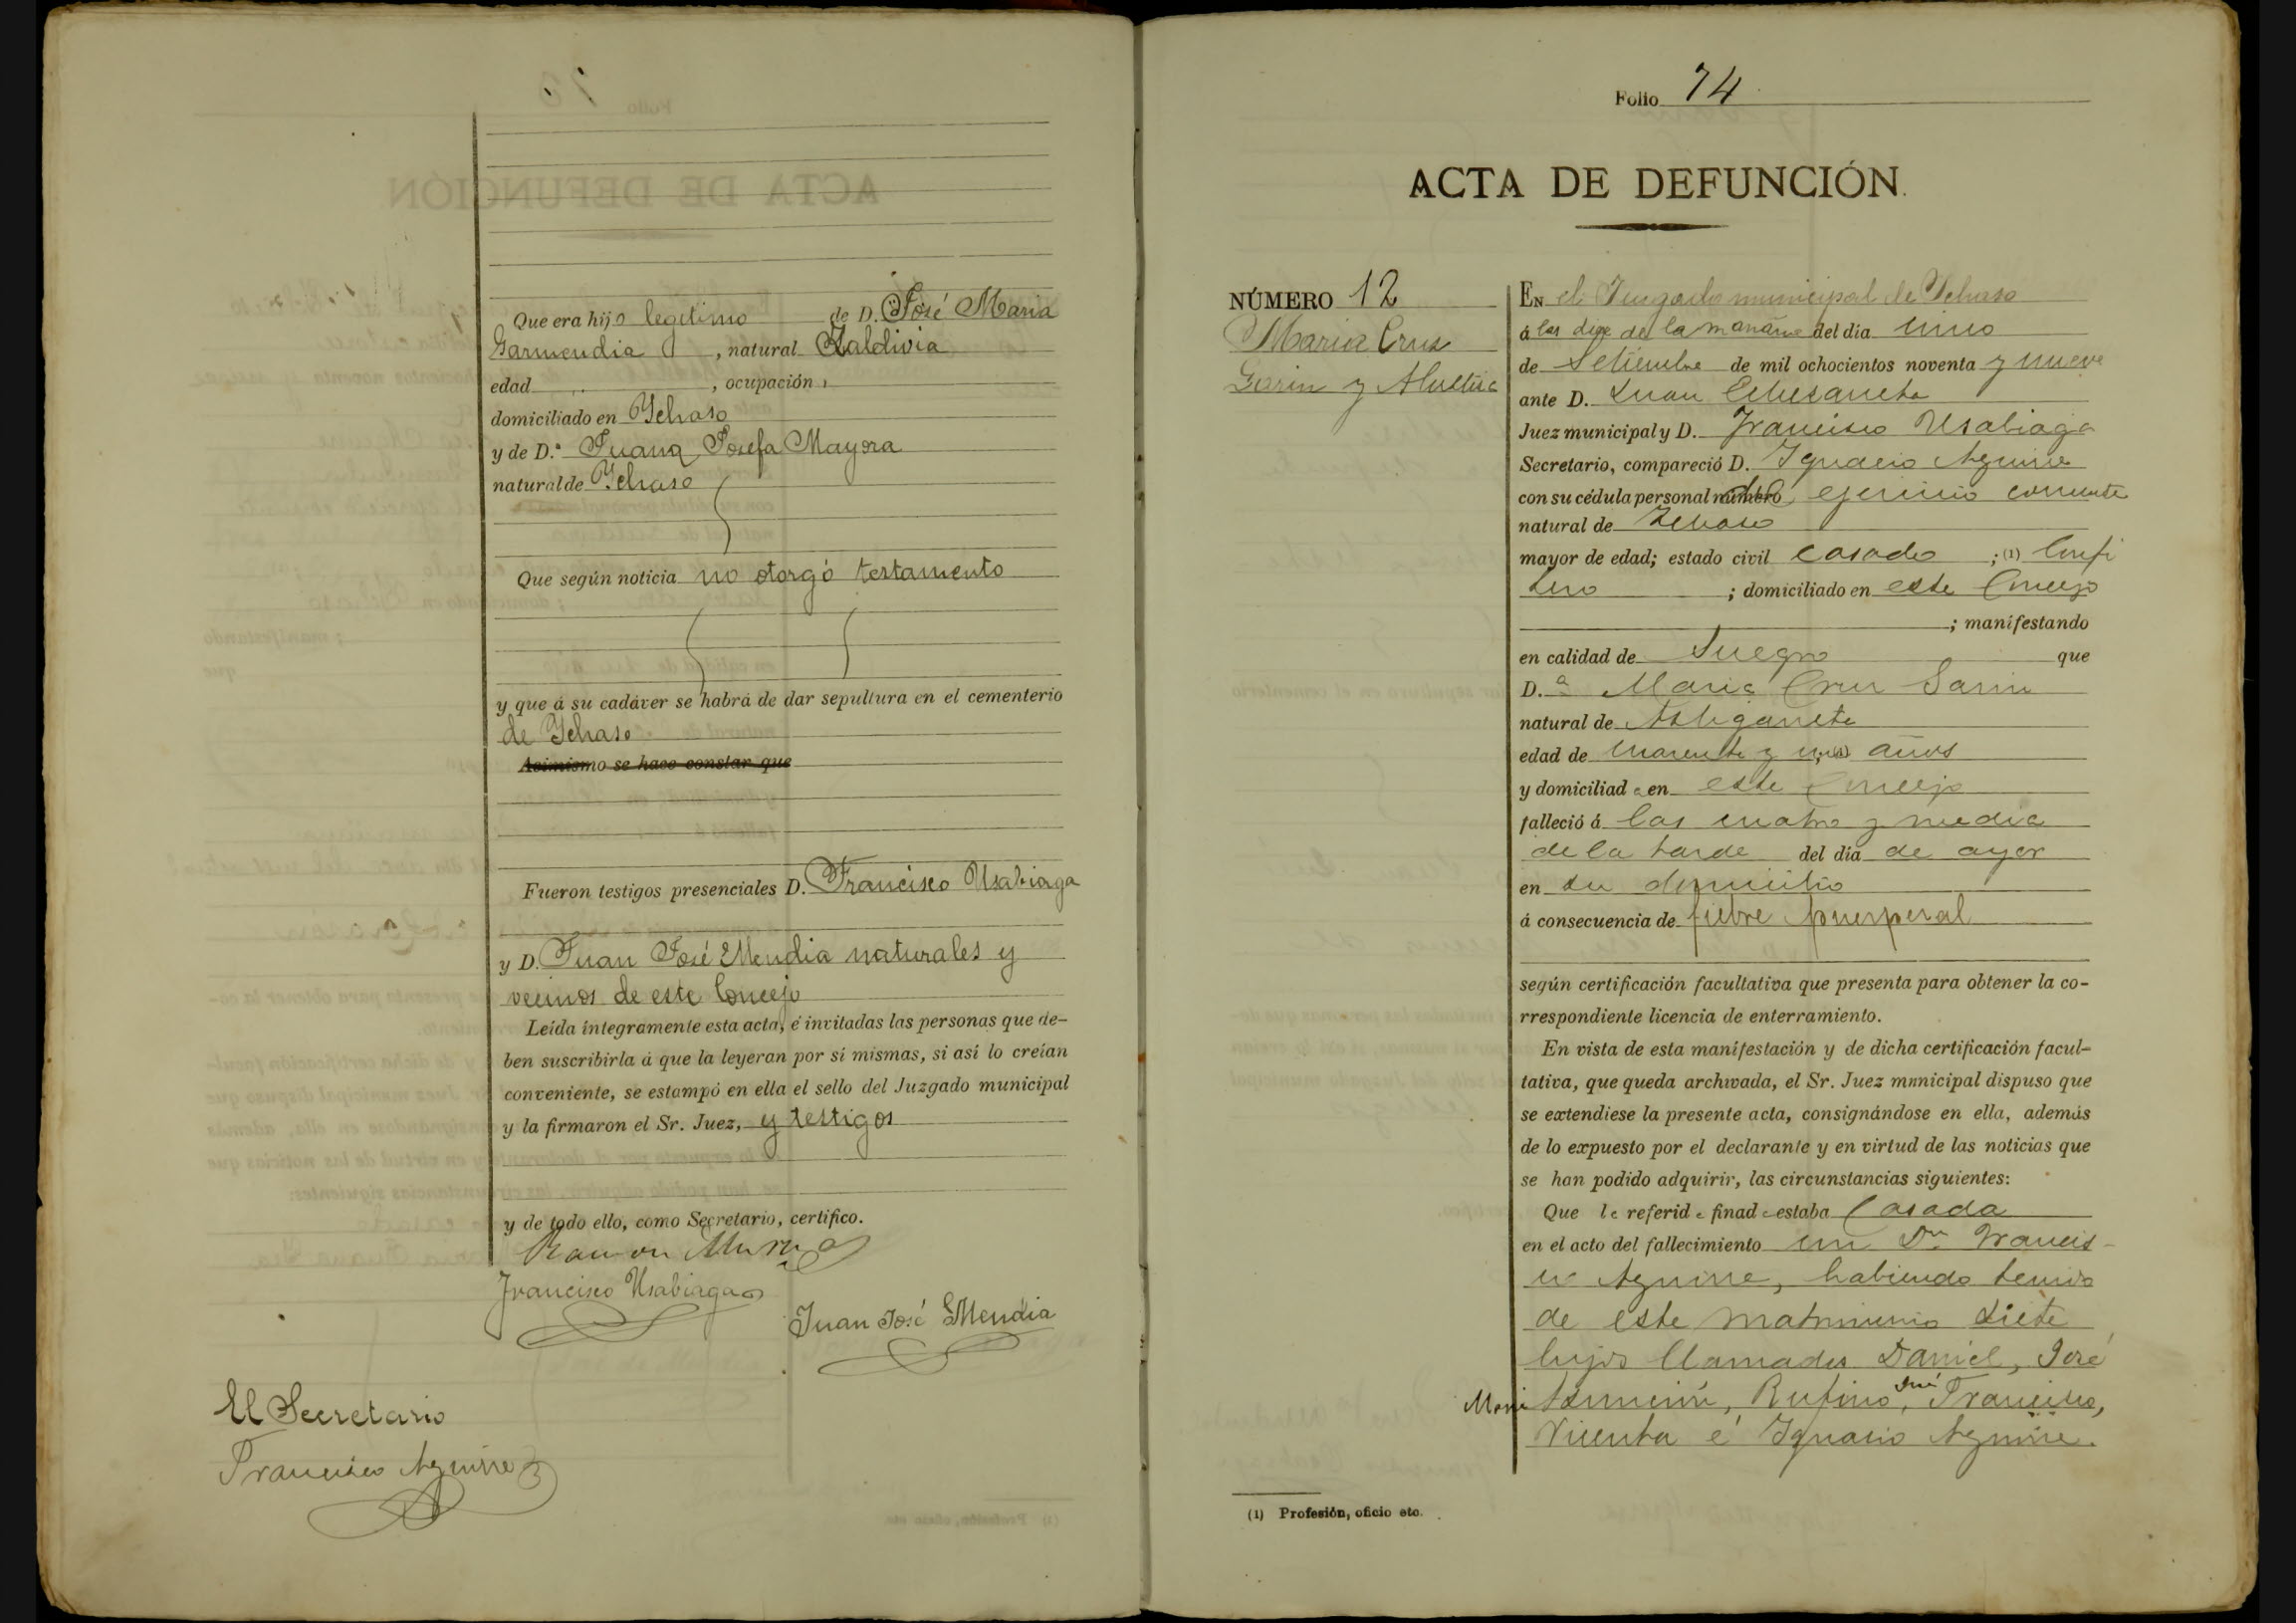 Que era hijo legitimo de D. José Maria
Garmendia, natural Zaldivia
edad , ocupación
domiciliado en Ychaso
y de D.ª Juana Josefa Mayora
natural de Ychaso
Que según noticia no otorgó testamento
y que á su cadáver se habrá de dar sepultura en el cementerio
de Ychaso
Asimismo se hace constar que
Fueron testigos presenciales D. Francisco Usabiaga
y D. Juan José Mendia naturales y
vecinos de este Concejo
Leída íntegramente esta acta, é invitadas las personas que de-
ben suscribirla á que la leyeran por sí mismas, si así lo creían
conveniente, se estampó en ella el sello del Juzgado municipal
y la firmaron el Sr. Juez, y testigos
y de todo ello, como Secretario, certifico.
Ramon
Francisco Usabiaga
Juan José Mendia
El Secretario
Francisco Aguirre
Folio 74
ACTA DE DEFUNCIÓN.
NÚMERO 12
Maria Cruz
Garin y
EN el Juzgado municipal de Ychaso
á las diez de la mañana del día uno
de Setiembre de mil ochocientos noventa y nueve
ante D. Juan
Juez municipal y D. Francisco Usabiaga
Secretario, compareció D. Ygnacio Aguirre
con su cédula personal número del ejercicio corriente
natural de Ychaso
mayor de edad; estado civil casado ; (1) Confi
tero ; domiciliado en este Concejo
; manifestando
en calidad de Suegro que
D.ª Maria Cruz Garin
natural de Astigarreta
edad de cuarenta y un años
y domiciliada en este Concejo
falleció á las cuatro y media
de la tarde del día de ayer
en su domicilio
á consecuencia de fiebre puerperal
según certificación facultativa que presenta para obtener la co-
rrespondiente licencia de enterramiento.
En vista de esta manifestación y de dicha certificación facul-
tativa, que queda archivada, el Sr. Juez municipal dispuso que
se extendiese la presente acta, consignándose en ella, además
de lo expuesto por el declarante y en virtud de las noticias que
se han podido adquirir, las circunstancias siguientes:
Que la referida finada estaba Casada
en el acto del fallecimiento con Dn Francis-
co Aguirre, habiendo tenido
de este matrimonio siete
hijos llamados Daniel, José
Asunción, Rufino, José Francisco,
Vicenta é Ygnacio Aguirre.
(1) Profesión, oficio etc.